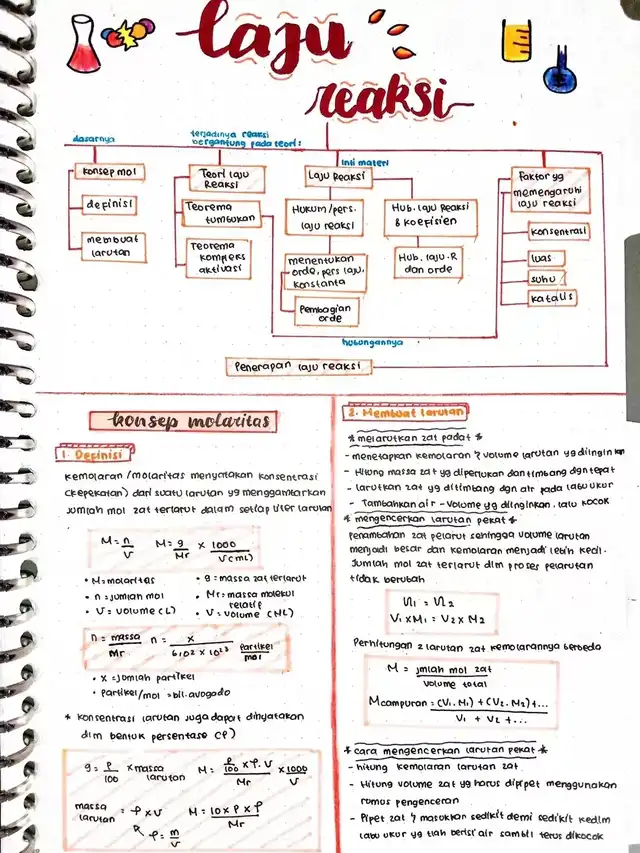 laju
reaksi
dasarnya
terjadinya reaksi
bergantung pada teori:
Inti materi
konsep mol
definisi
membuat
larutan
Teori laju
Reaksi
Teorema
tumbukan
Teorema
kompleks
aktivasi
Laju Reaksi
Hukum/pers.
laju reaksi
menentukan
orde, pers laju,
konstanta
Pembagian
orde
Hub. laju Reaksi
& koefisien
Hub. laju-R
dan orde
Faktor yg
memengaruhi
laju reaksi
konsentrasi
luas
suhu
katalis
hubungannya
Penerapan laju reaksi
konsep molaritas
1. Definisi
kemolaran /molaritas menyatakan konsentrasi
(kepekatan) dari suatu larutan yg menggambarkan
jumlah mol zat terlarut dalam setiap liter larutan
M = n/V M = g/Mr × 1000/V(mL)
• M = molaritas • g = massa zat terlarut
• n = jumlah mol • Mr = massa molekul
relatif
• V = volume (L) • V = volume (ML)
n = massa/Mr n = x/6,02 × 10²³ partikel/mol
• x = jumlah partikel
• partikel/mol = bil. avogado
* konsentrasi larutan juga dapat dinyatakan
dlm bentuk persentase (P)
g = P/100 × massa larutan M = P/100 × ρ.V/Mr × 1000/V
massa larutan = ρ × V M = 10 × P × ρ/Mr
ρ = m/V
2. Membuat larutan
* melarutkan zat padat *
- menetapkan kemolaran & volume larutan yg diinginkan
- Hitung massa zat yg diperlukan dan timbang dgn tepat
- larutkan zat yg ditimbang dgn air pada labu ukur
- Tambahkan air - volume yg diinginkan, lalu kocok
* mengencerkan larutan pekat *
Penambahan zat pelarut sehingga volume larutan
menjadi besar dan kemolaran menjadi lebih kecil.
Jumlah mol zat terlarut dlm proses pelarutan
tidak berubah
n1 = n2
V1 × M1 = V2 × M2
Perhitungan 2 larutan zat kemolarannya berbeda
M = jmlah mol zat/volume total
Mcampuran = (V1.M1) + (V2.M2) +.../V1 + V2 +...
* cara mengencerkan larutan pekat *
- hitung kemolaran larutan zat
- Hitung volume zat yg harus dipipet menggunakan
rumus pengenceran
- Pipet zat & masukkan sedikit demi sedikit kedlm
labu ukur yg tlah berisi air sambil terus dikocok